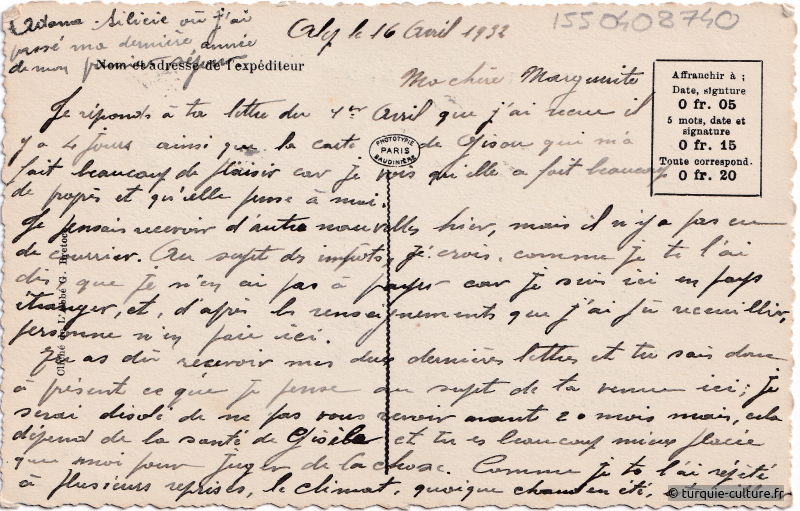 Adana - Silicie où j'ai
passé ma dernière année
de mon premier séjour.
Nom et adresse de l'expéditeur
Alep le 16 Avril 1932
1550408740
Ma chère Marguerite
Affranchir à :
Date, signture
0 fr. 05
5 mots, date et
signature
0 fr. 15
Toute correspond.
0 fr. 20
PHOTOTYPIE
PARIS
BAUDINIÈRE
Je réponds à ta lettre du 1er Avril que j'ai reçue il
y a 4 jours ainsi que la carte de Gison qui m'a
fait beaucoup de plaisir car je vois qu'elle a fait beaucoup
de progrès et qu'elle pense à moi.
Je pensais recevoir d'autres nouvelles hier, mais il n'y a pas eu
de courrier. Au sujet des impots, je crois, comme je te l'ai
dis que je n'en ai pas à payer car je suis ici en pays
étranger, et, d'après les renseignements que j'ai pu recueillir,
personne n'en paie ici.
Tu as dû recevoir mes deux dernières lettres et tu sais donc
à présent ce que je pense au sujet de ta venue ici ; je
serai désolé de ne pas vous revoir avant 20 mois mais, cela
dépend de la santé de Gisèle et tu es beaucoup mieux placée
que moi pour juger de la chose. Comme je te l'ai répété
à plusieurs reprises, le climat, quoique chaud en été,
Cliché de l'Abbé G. Bretocq
© turquie-culture.fr